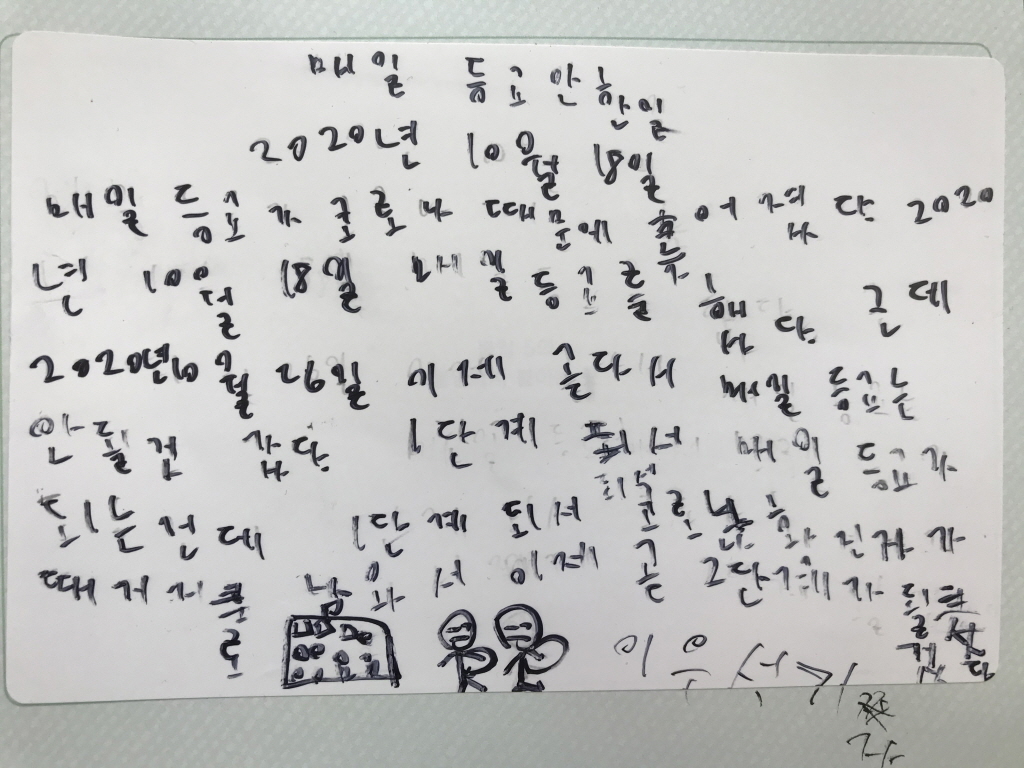 매일 등교안한일
2020년 10월 18일
매일 등교가 코로나 때문에 늦어졌다 2020
년 10월 18일 매일등교를 했다 근데
2020년10월 26일 이제 곧다서 매일 등교는
안될것 같다 1단계 되서 매일 등교가
되는건데 1단계 되서 코로나 확진자가
때거지로 나와서 이제 곧 2단계가 될것 같다
이윤서기자